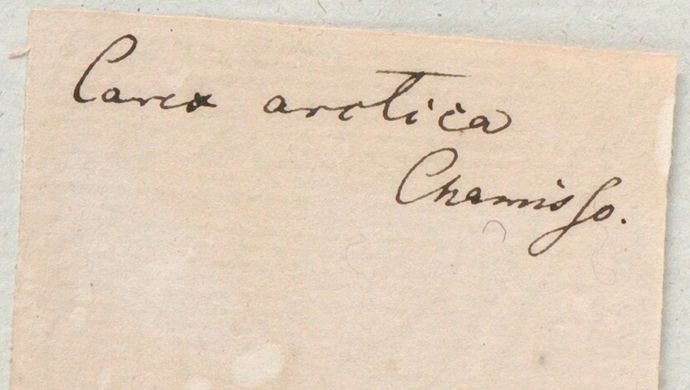 Carex arctica
Chamisso.